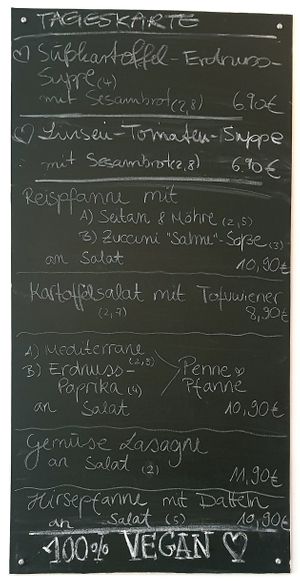 TAGESKARTE
♡ Süßkartoffel-Erdnuss-
Suppe (4)
mit Sesambrot (2,8) 6,90€
♡ Linsen-Tomaten-Suppe
mit Sesambrot (2,8) 6,90€
Reispfanne mit
A) Seitan & Möhre (2,5)
B) Zuccini "Sahne"-Soße (3)
an Salat 10,90€
Kartoffelsalat mit Tofuwiener
(2,7) 8,90€
A) Mediterrane (2,8)
B) Erdnuss-
Paprika (4)
Penne ♡
Pfanne
an Salat 10,90€
Gemüse Lasagne
an Salat (2)
11,90€
Hirsepfanne mit Datteln
an Salat (5) 10,90€
100% VEGAN ♡